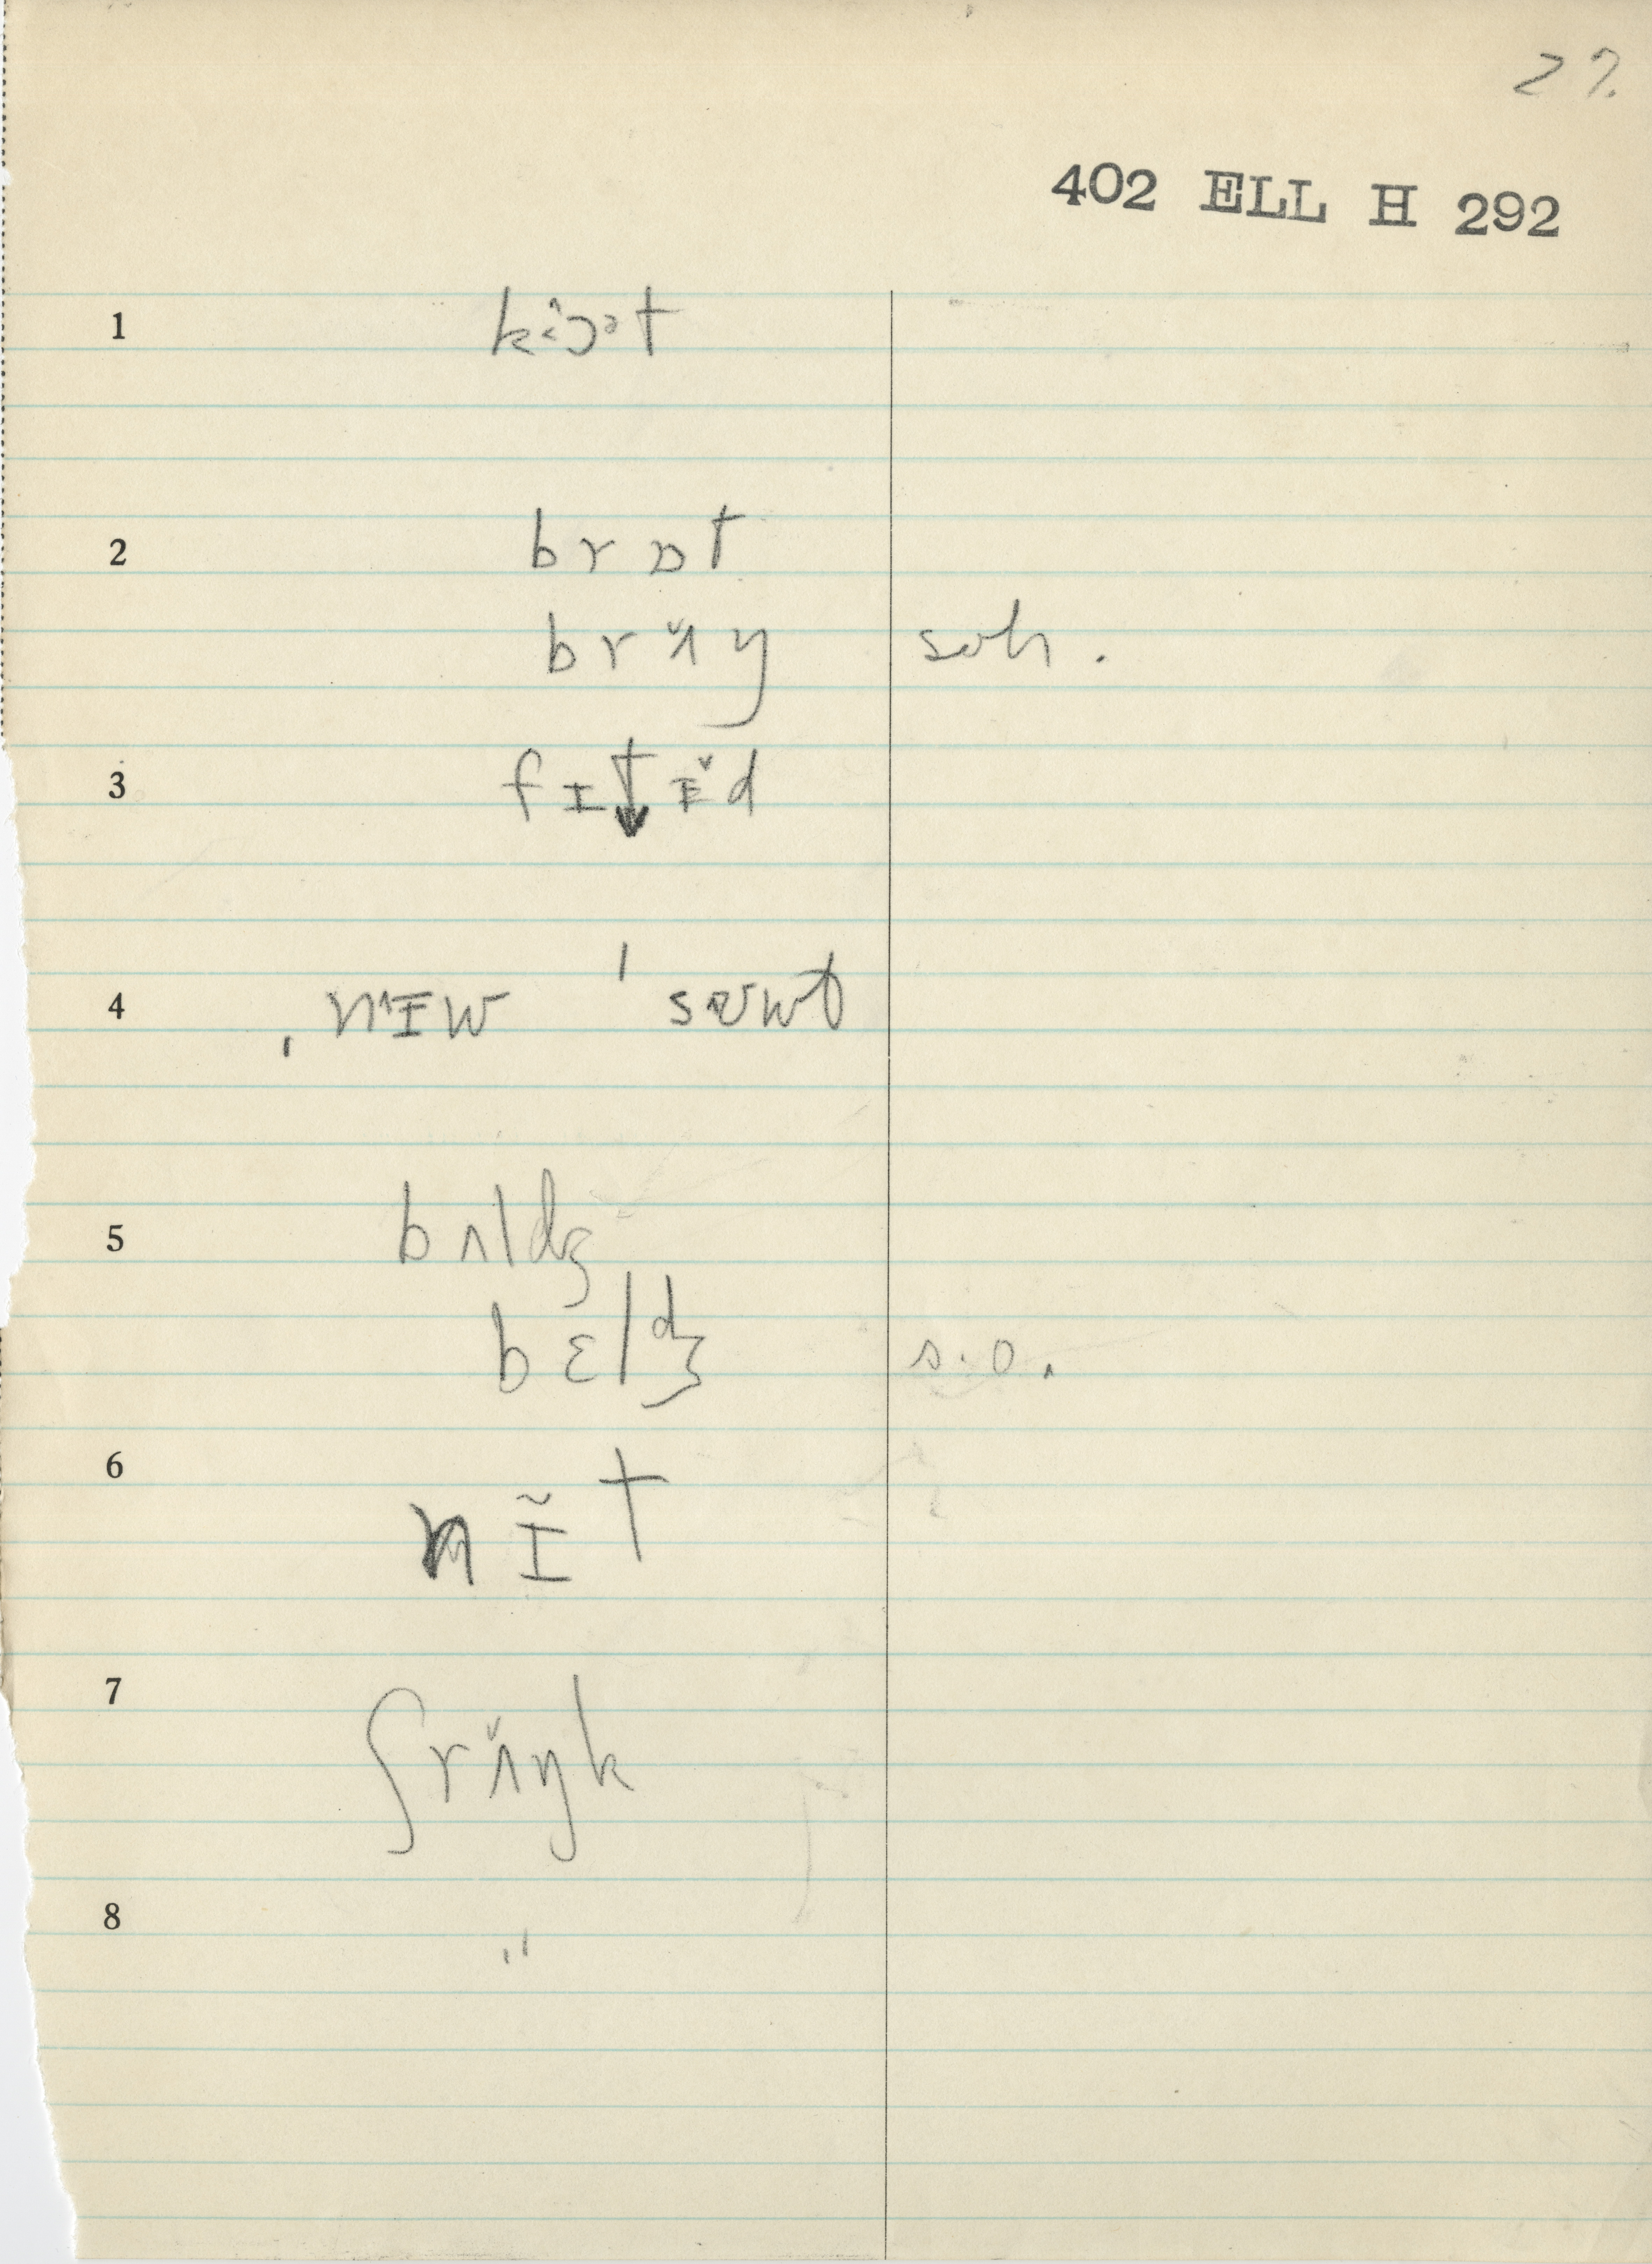 27.
402 ELL H 292
1
2 brɒt
brʌ̆ŋ soh.
3 fɪt↓ɪ̆d
4 ˌnɪ̂w ˈsɐʊwt
5 bʌldʒ
bɛldʒ s.o.
6 nɪ̃t
7 ʃrʌ̆ŋk
8 "